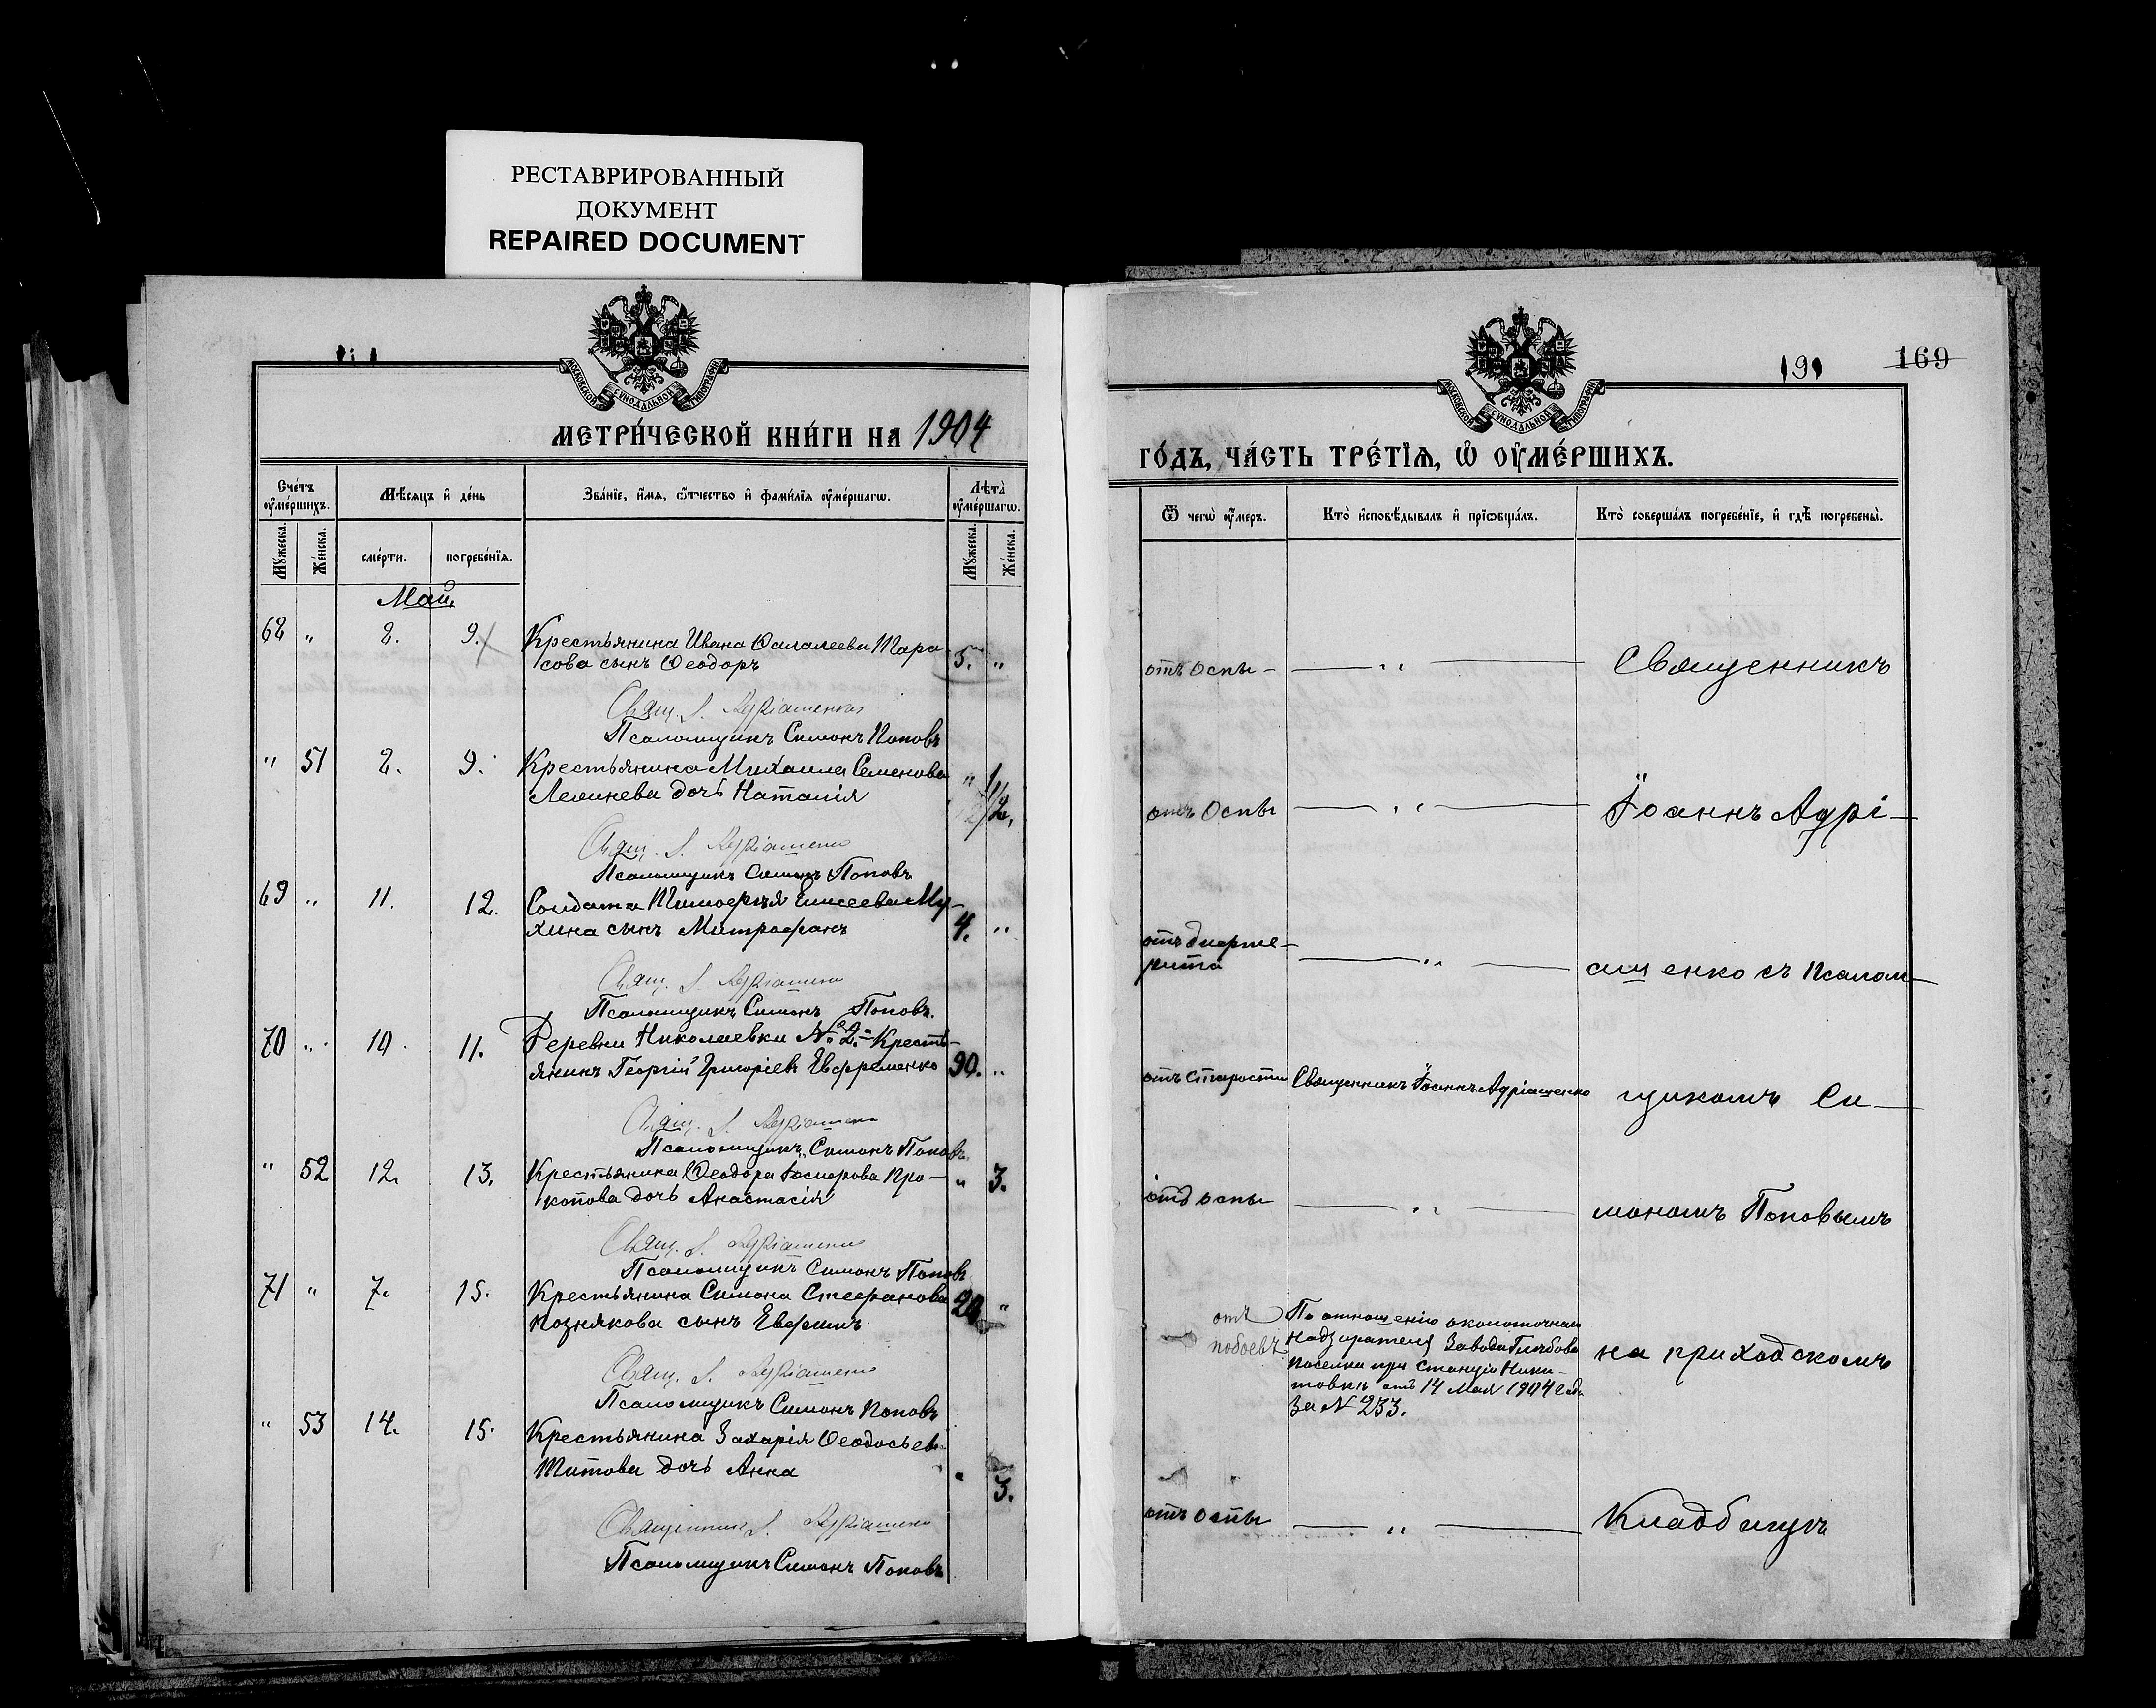 РЕСТАВРИРОВАННЫЙ
ДОКУМЕНТ
REPAIRED DOCUMENT
МОСКОВСКОЙ СѴНОДАЛЬНОЙ ТИПОГРАФІИ
МЕТРИ́ЧЕСКОЙ КНИ́ГИ НА 1904
Сче́тъ ᲂу҆ме́ршихъ.
Мѣ́сяцъ и҆ де́нь
Зва́нїе, и҆́мѧ, ѻ҆́тчество и҆ фами́лїѧ ᲂу҆ме́ршагѡ.
Лѣ́та ᲂу҆ме́ршагѡ.
Мꙋжеска.
Же́нска.
сме́рти.
погребе́нїѧ.
Мꙋжеска.
Же́нска.
Май
68 " 8. 9. Крестьянина Ивана Фалалеева Тара-
сова сынъ Ѳеодоръ 5. "
Свящ. І. Адріашенко
Псаломщикъ Симонъ Поповъ
" 51 8. 9. Крестьянина Михаила Семенова
дочь Наталія " 1/2.
Свящ. І. Адріашенко
Псаломщикъ Симонъ Поповъ
69 " 11. 12. Солдата Тимоѳея Елисеева Му-
хина сынъ Митрофанъ 4. "
Свящ. І. Адріашенко
Псаломщикъ Симонъ Поповъ.
70 " 10. 11. Деревни Николаевки № 2-й кресть-
янинъ Георгій Григоріевъ Евфременко 90. "
Свящ. І. Адріашенко
Псаломщикъ Симонъ Поповъ
" 52 12. 13. Крестьянина Ѳеодора Іосифова Про-
копова дочь Анастасія " 3.
Свящ. І. Адріашенко
Псаломщикъ Симонъ Поповъ
71 " 7. 15. Крестьянина Симона Стефанова
Познякова сынъ Евфимъ 20 "
Свящ. І. Адріашенко
Псаломщикъ Симонъ Поповъ
" 53 14. 15. Крестьянина Захарія Ѳеодосьева
Титова дочь Анна " 3.
Священникъ І. Адріашенко
Псаломщикъ Симонъ Поповъ
191 169
МОСКОВСКОЙ СѴНОДАЛЬНОЙ ТИПОГРАФІИ
ГО́ДЪ, ЧА́СТЬ ТРЕ́ТЇѦ, Ѡ҆ ОУ҆МЕ́РШИХЪ.
Ѿ чегѡ̀ ᲂу҆́меръ.
Кто̀ и҆сповѣ́дывалъ и҆ прїѡбща́лъ.
Кто̀ соверша́лъ погребе́нїе, и҆ гдѣ̀ погребены̀.
отъ оспы — " — Священникъ
отъ оспы — " — Іоаннъ Адрі-
отъ дифте-
рита — " — ашенко съ псалом-
отъ старости Священникъ Іоаннъ Адріашенко щикомъ Си-
отъ оспы — " — мономъ Поповымъ
отъ
побоевъ
По отношенію околоточнаго
Надзирателя Завода Глѣбова
поселка при станціи Ники-
товкѣ отъ 14 Мая 1904 года
За № 233.
на приходскомъ
отъ оспы — " — Кладбищѣ